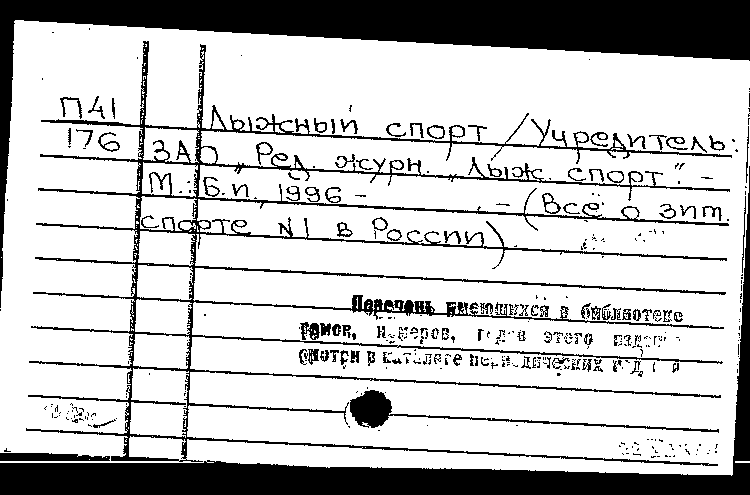 П41 Лыжный спорт / Учредитель:
176 ЗАО „Ред. журн. „Лыж. спорт". –
М.: Б.и., 1996 – . – (Всё о зим.
спорте N1 в России)
Перечень имеющихся в библиотеке
томов, номеров, годов этого издания
смотри в каталоге периодических изданий